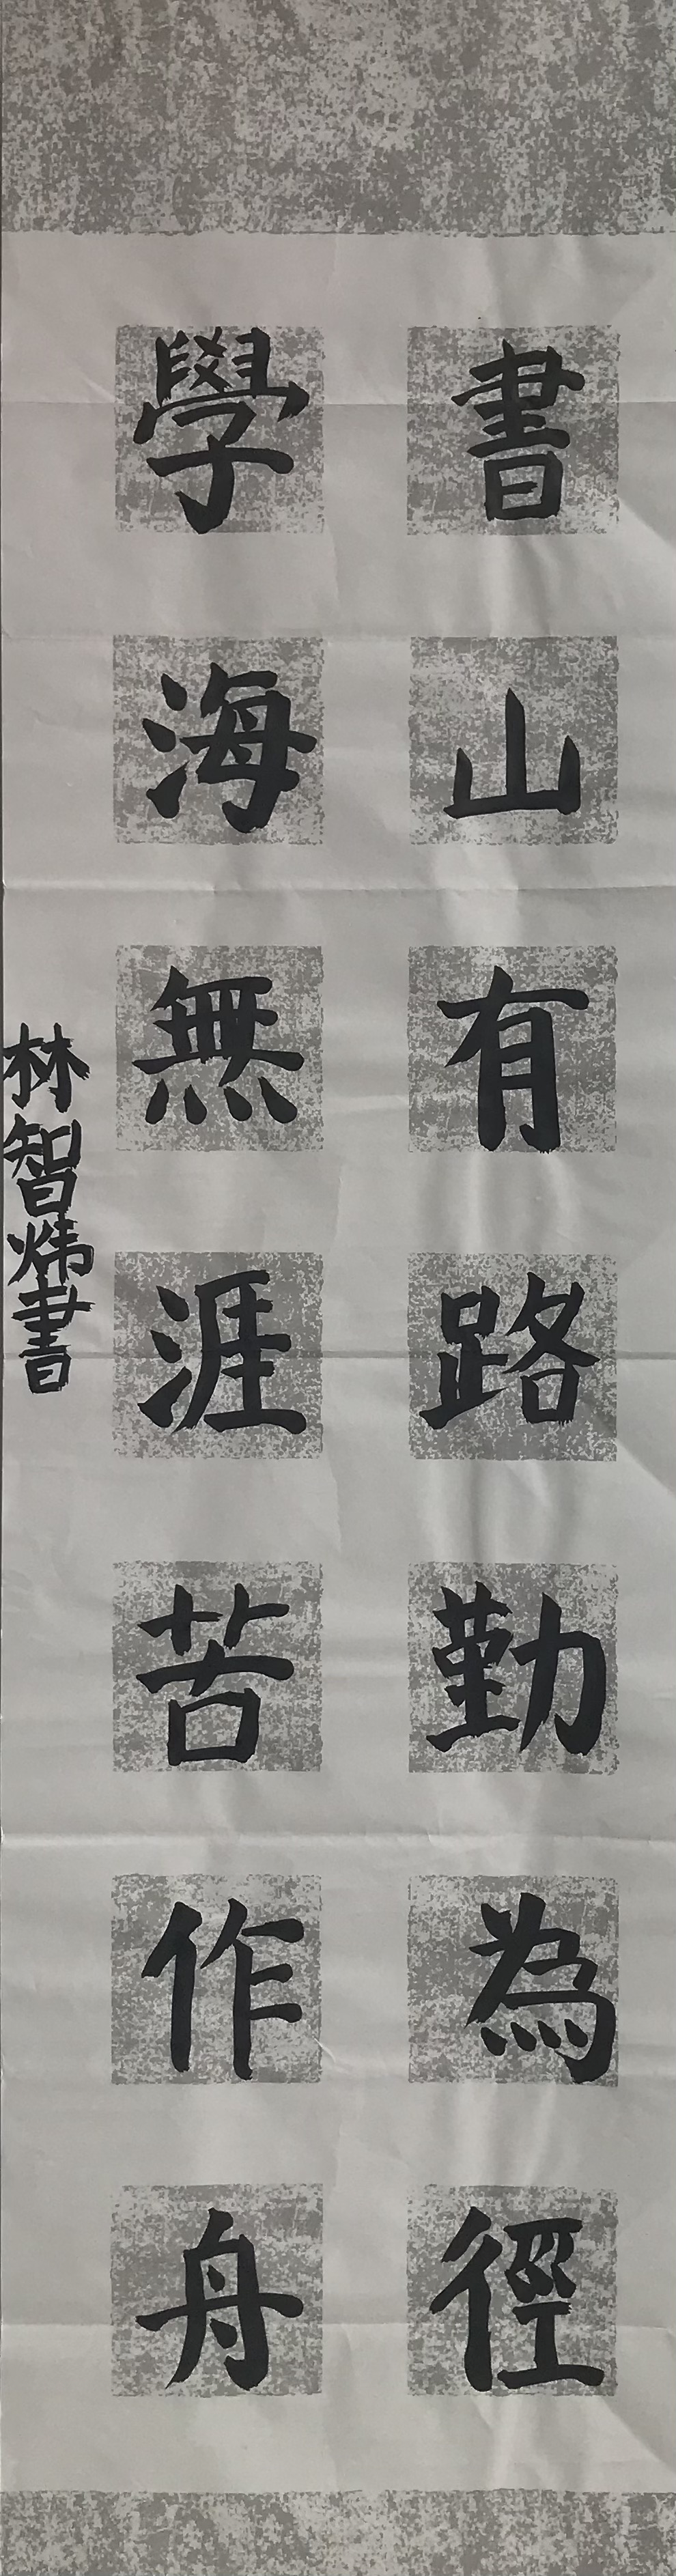 書山有路勤為徑
學海無涯苦作舟
林智煒書